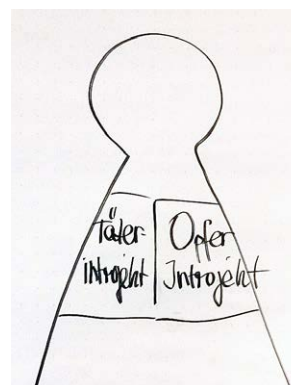 Täter-
introjekt
Opfer
Introjekt